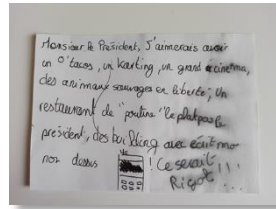 Monsieur le Président, J'aimerais avoir
un O'tacos, un Karting, un grand cinéma,
des animaux sauvages en liberté, Un
restaurant de "poutine" le plat pas le
président, des building avec écrit mon
nom dessus ! Ce serait
Rigot !!!